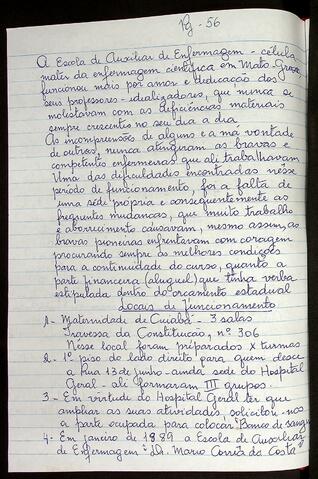 Pg - 56
A Escola de Auxiliar de Enfermagem - célula
mater da enfermagem científica em Mato-Grosso
funcionou mais por amor e dedicação dos
seus professores - idealizadores, que nunca se
molestavam com as deficiências materiais
sempre crescentes no seu dia a dia
As incompreensões de alguns e a má vontade
de outros, nunca atingiram as bravas e
competentes enfermeiras que ali trabalhavam
Uma das dificuldades encontradas nesse
período de funcionamento, foi a falta de
uma séde própria e consequentemente as
frequentes mudanças, que muito trabalho
e aborrecimento causavam, mesmo assim, as
bravas pioneiras enfrentavam com coragem
procurando sempre as melhores condições
para a continuidade do curso, quanto a
parte financeira (aluguel) que tinha verba
estipulada dentro do orçamento estadual
Locais de Funcionamento
1 - Maternidade de Cuiabá - 3 salas
Travessa da Constituição, nº 306
Nesse local foram preparados X turmas
2 - 1º piso do lado direito para quem desce
a Rua 13 de junho - ainda sede do Hospital
Geral - ali formaram III grupos.
3 - Em virtude do Hospital Geral ter que
ampliar as suas atividades, solicitou-nos
a parte ocupada para colocar "Banco de sangue
4 - Em janeiro de 1889 a Escola de Auxiliar
de Enfermagem "Dr. Mario Corrêa da Costa"